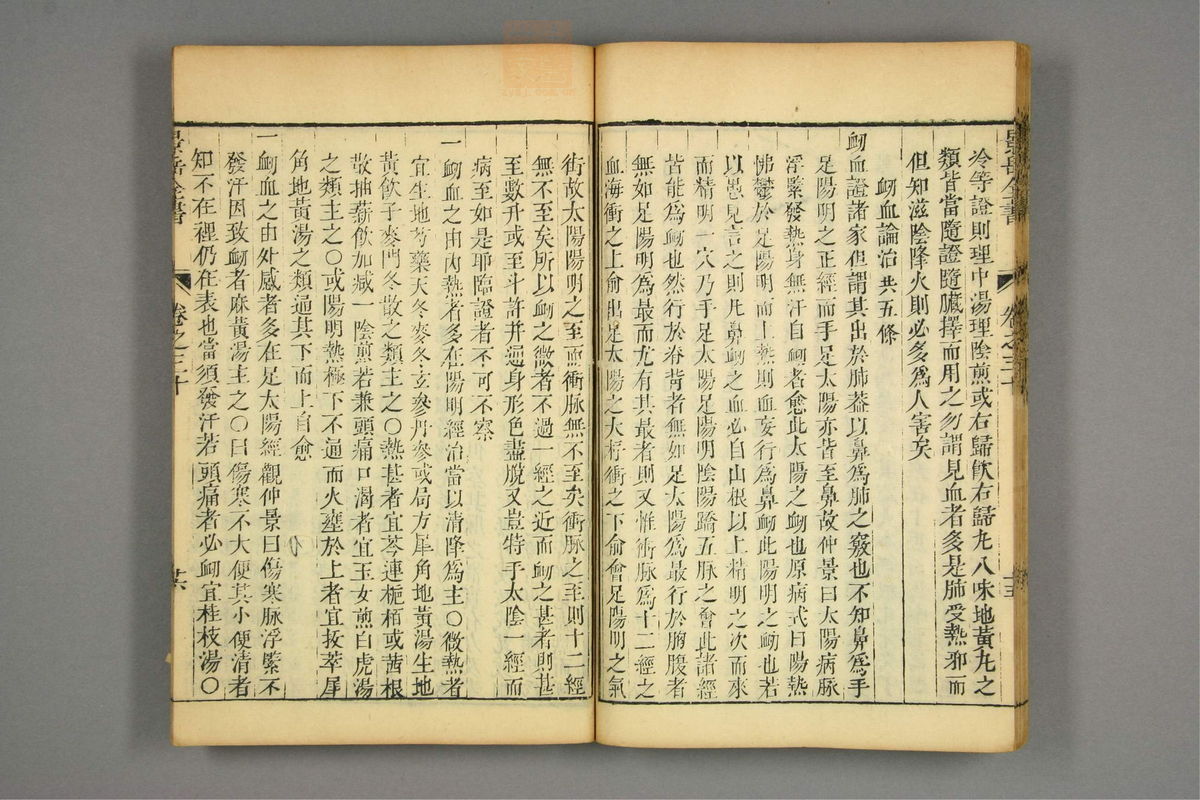 冷等證則理中湯理陰煎或右歸飲右歸丸八味地黃丸之
類皆當隨證隨臟擇而用之勿謂見血者多是肺受熱邪而
但知滋陰降火則必多為人害矣
衂血論治 共五條
衂血證諸家但謂其出於肺葢以鼻為肺之竅也不知鼻為手
足陽明之正經而手足太陽亦皆至鼻故仲景曰太陽病脉
浮緊發熱身無汗自衂者愈此太陽之衂也原病式曰陽熱
怫鬱於足陽明而上熱則血妄行為鼻衂此陽明之衂也若
以愚見言之則凡鼻衂之血必自山根以上精明之次而來
而精明一穴乃手足太陽足陽明陰陽蹻五脉之會此諸經
皆能為衂也然行於脊背者無如足太陽為最行於胸腹者
無如足陽明為最而尤有其最者則又惟衝脉為十二經之
血海衝之上俞出足太陽之大杼衝之下俞會足陽明之氣
街故太陽陽明之至而衝脉無不至矣衝脉之至則十二經
無不至矣所以衂之微者不過一經之近而衂之甚者則甚
至數升或至斗許并通身形色盡脫又豈特手太陰一經而
病至如是耶臨證者不可不察
一衂血之由內熱者多在陽明經治當以清降為主○微熱者
宜生地芍藥天冬麥冬玄參丹參或局方犀角地黃湯生地
黃飲子麥門冬散之類主之○熱甚者宜芩連梔栢或茜根
散抽薪飲加減一陰煎若兼頭痛口渴者宜玉女煎白虎湯
之類主之○或陽明熱極下不通而火壅於上者宜拔萃犀
角地黃湯之類通其下而上自愈
一衂血之由外感者多在足太陽經觀仲景曰傷寒脉浮緊不
發汗因致衂者麻黃湯主之○曰傷寒不大便其小便清者
知不在裡仍在表也當須發汗若頭痛者必衂宜桂枝湯○
景岳全書
卷之三十
廿六